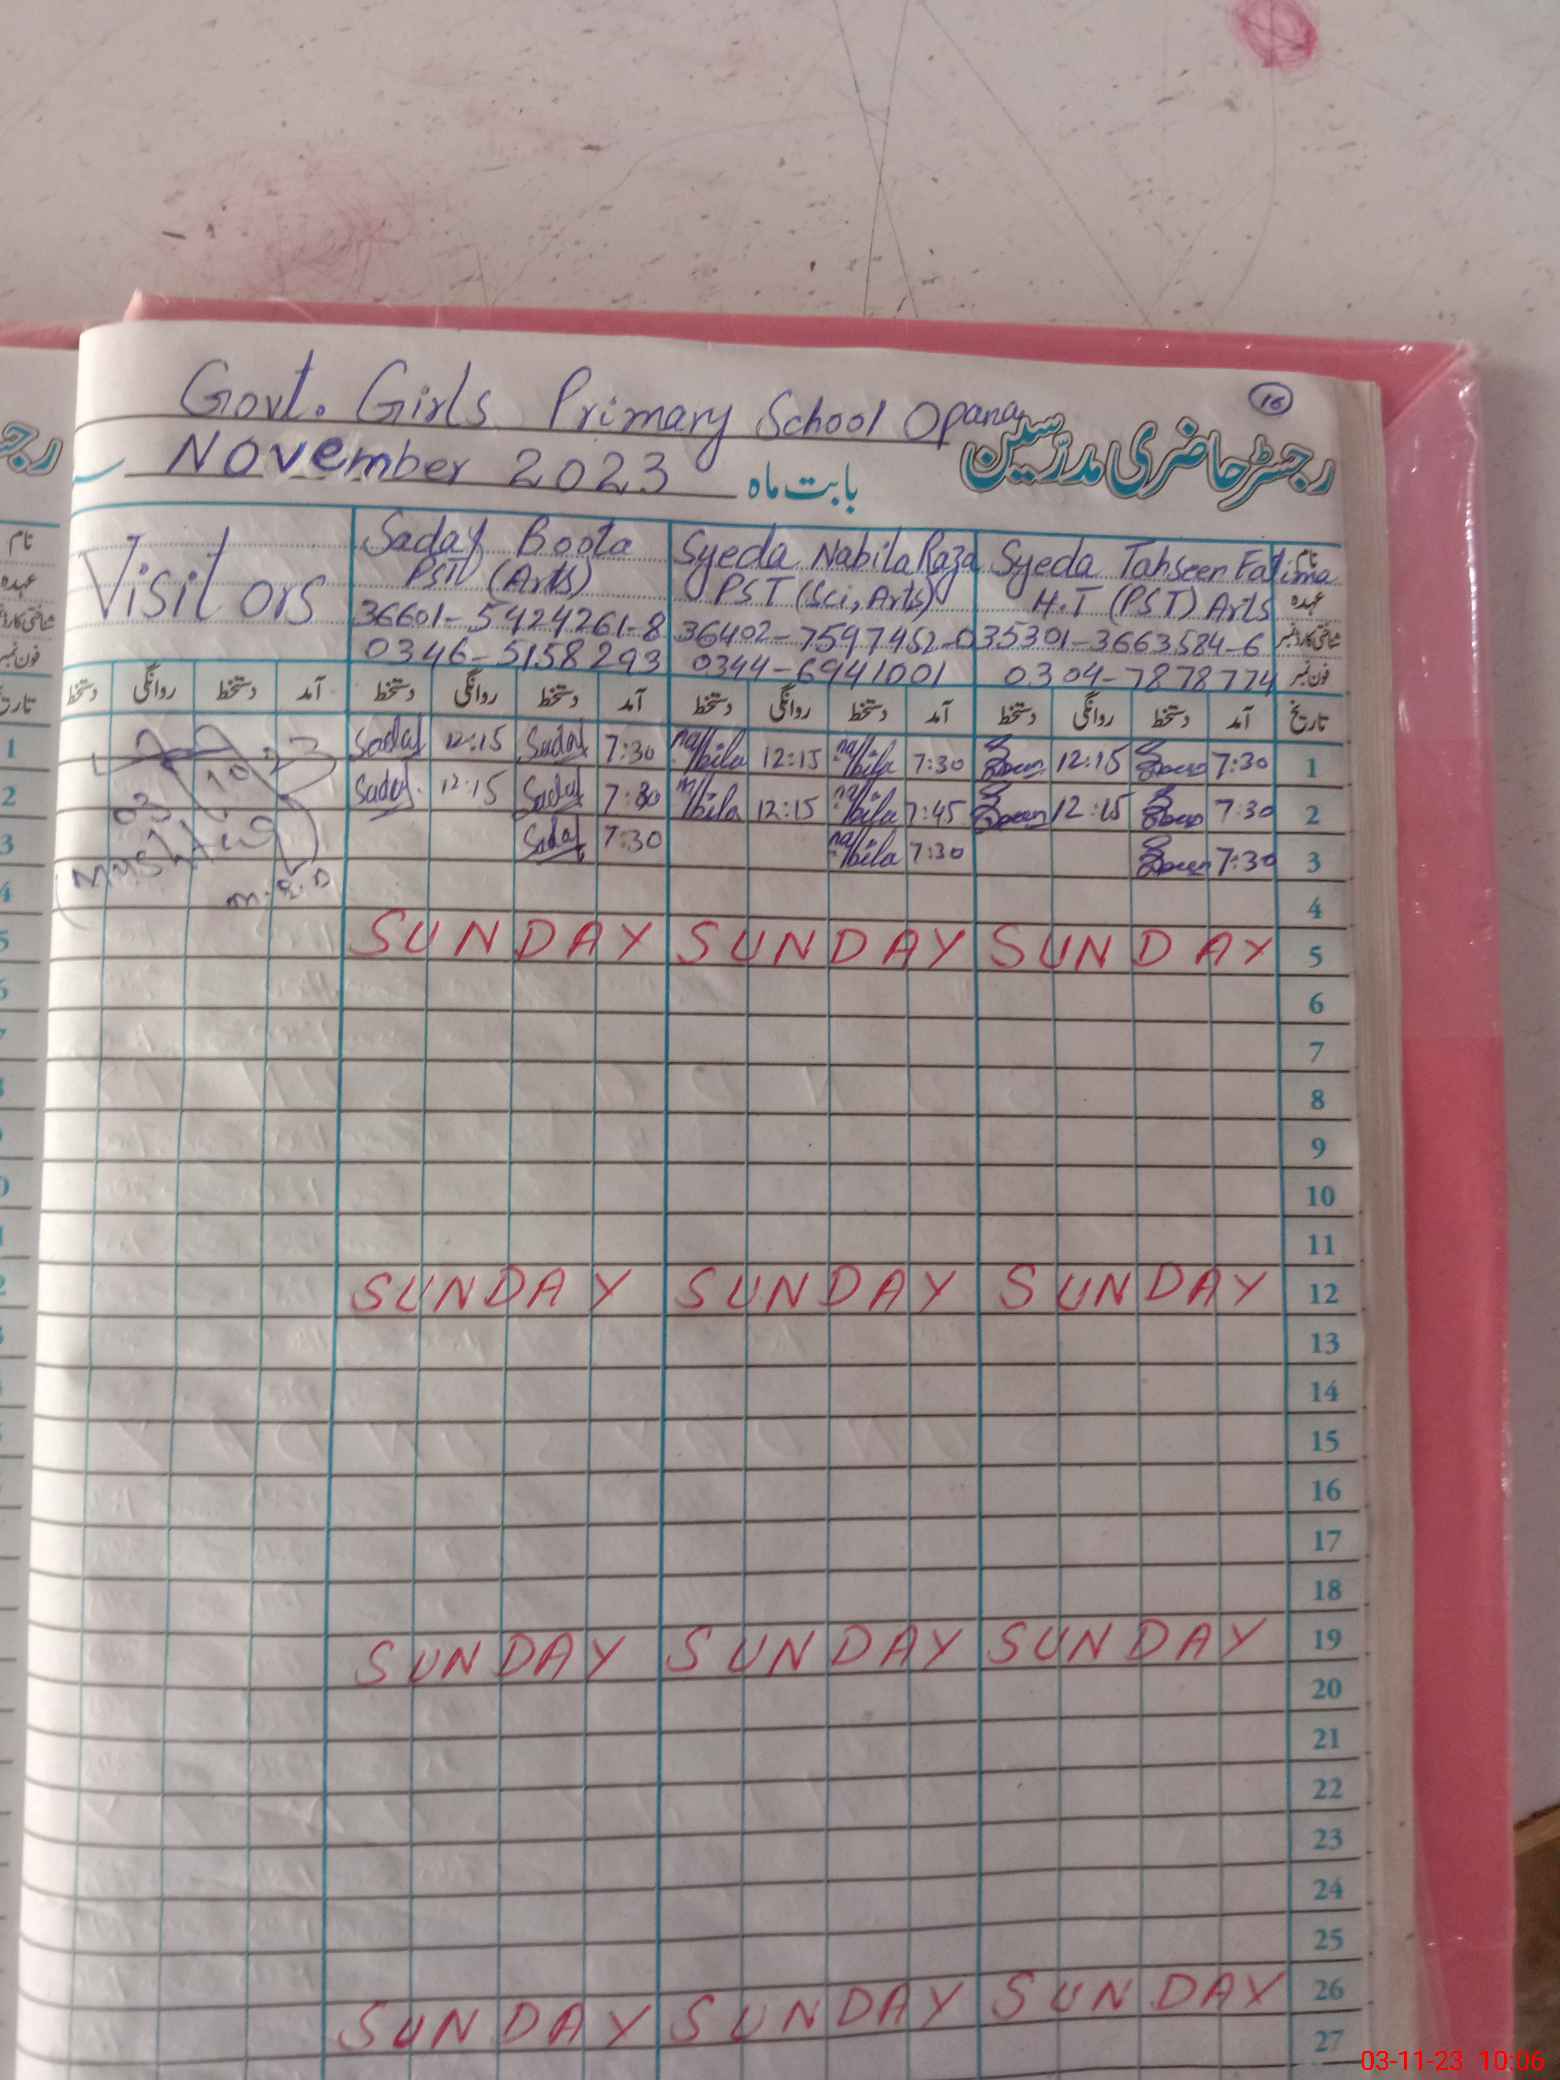 16
Govt. Girls Primary School Opana
رجسٹر حاضری مدرسین
November 2023 بابت ماہ
Visitors
Sadaf Boota
PST (Arts)
36601-5424261-8
0346-5158293
Syeda Nabila Raza
PST (Sci, Arts)
36402-7597452-0
0344-6941001
Syeda Tahseen Fatima
H.T (PST) Arts
35301-3663584-6
0304-7878774
نام
عہدہ
شناختی کارڈ نمبر
فون نمبر
دستخط روانگی دستخط آمد دستخط روانگی دستخط آمد دستخط روانگی دستخط آمد دستخط روانگی دستخط آمد تاریخ
Sadaf 12:15 Sadaf 7:30 nabila 12:15 nabila 7:30 12:15 7:30 1
Sadaf 12:15 Sadaf 7:30 nabila 12:15 nabila 7:45 12:15 7:30 2
Sadaf 7:30 nabila 7:30 7:30 3
4
SUNDAY SUNDAY SUNDAY 5
6
7
8
9
10
11
SUNDAY SUNDAY SUNDAY 12
13
14
15
16
17
18
SUNDAY SUNDAY SUNDAY 19
20
21
22
23
24
25
SUNDAY SUNDAY SUNDAY 26
27
03-11-23 10:06